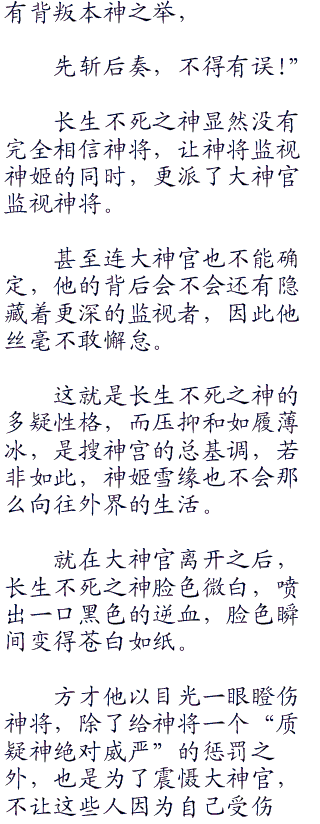 有背叛本神之举，
先斩后奏，不得有误！”
长生不死之神显然没有
完全相信神将，让神将监视
神姬的同时，更派了大神官
监视神将。
甚至连大神官也不能确
定，他的背后会不会还有隐
藏着更深的监视者，因此他
丝毫不敢懈怠。
这就是长生不死之神的
多疑性格，而压抑和如履薄
冰，是搜神宫的总基调，若
非如此，神姬雪缘也不会那
么向往外界的生活。
就在大神官离开之后，
长生不死之神脸色微白，喷
出一口黑色的逆血，脸色瞬
间变得苍白如纸。
方才他以目光一眼瞪伤
神将，除了给神将一个“质
疑神绝对威严”的惩罚之
外，也是为了震慑大神官，
不让这些人因为自己受伤